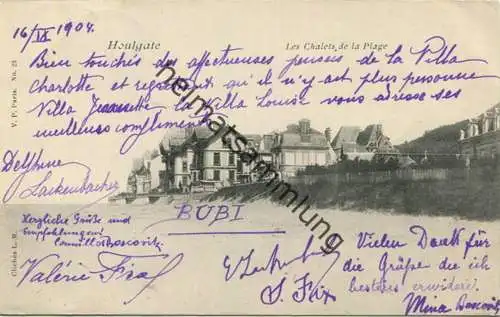 16/IX 1904.
Houlgate
Les Chalets de la Plage
Bien touchés des affectueuses pensées de la Villa
Charlotte et regrettant qu'il n'y ait plus personne
Villa Jeannette la Villa Louise vous adresse ses
meilleurs compliments
V. P. Paris. No. 23
heimatsammlung.de
Delphine
Lackenbacher
Herzliche Grüße und
Empfehlungen
Camillo Boscovitz
BUBI
Vielen Dank für
die Grüße die ich
bestens erwidere.
Mina Boscovitz
Valérie
Clichés L. W.